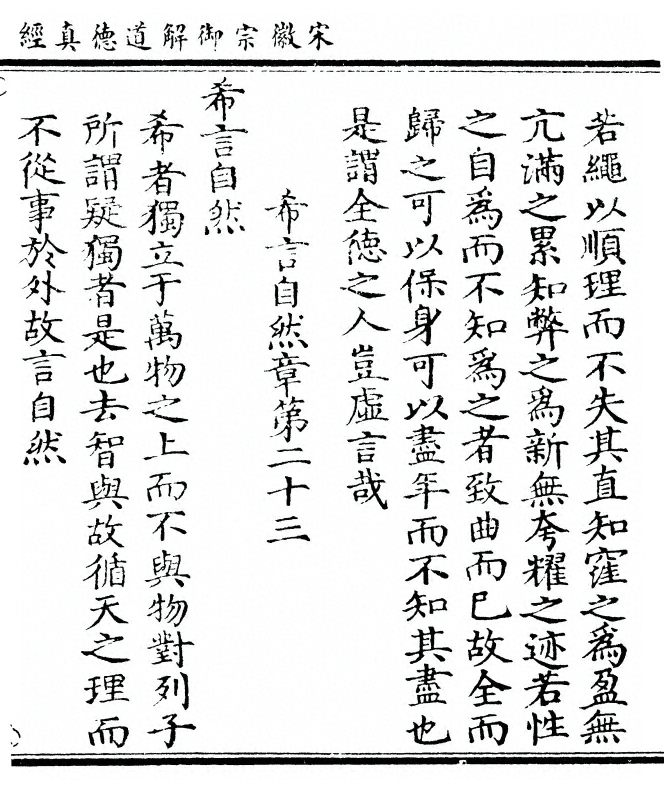 宋徽宗御解道德真經
若繩以順理而不失其直知窪之爲盈無
亢滿之累知弊之爲新無夸耀之迹若性
之自爲而不知爲之者致曲而已故全而
歸之可以保身可以盡年而不知其盡也
是謂全德之人豈虛言哉
希言自然章第二十三
希言自然
希者獨立于萬物之上而不與物對列子
所謂疑獨者是也去智與故循天之理而
不從事於外故言自然